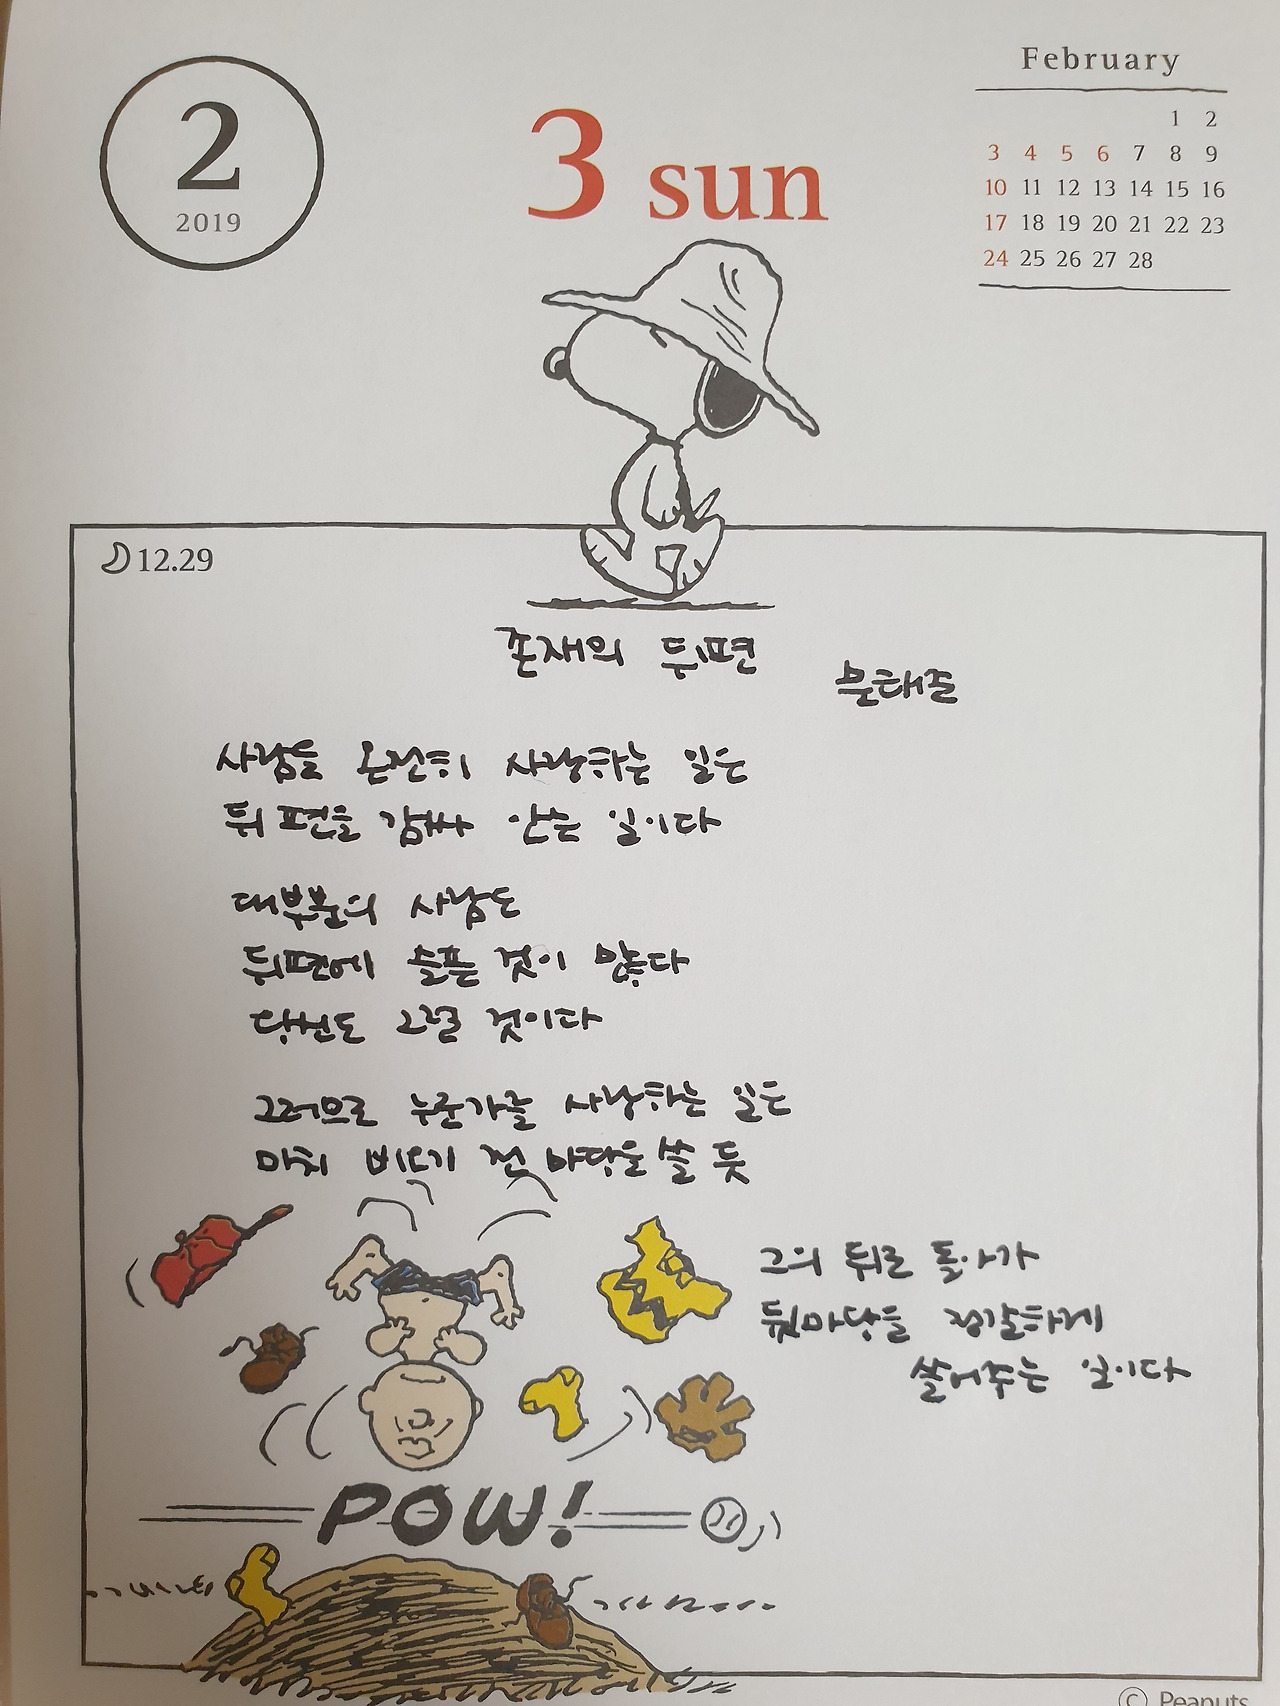 2
2019
3 sun
February
1 2
3 4 5 6 7 8 9
10 11 12 13 14 15 16
17 18 19 20 21 22 23
24 25 26 27 28
12.29
존재의 뒤편
문태준
사람을 온전히 사랑하는 일은
뒤편을 감싸 안는 일이다
대부분의 사람은
뒤편에 슬픈 것이 많다
당신도 그럴 것이다
그러므로 누군가를 사랑하는 일은
마치 비오기 전 마당을 쓸 듯
그의 뒤로 돌아가
뒷마당을 정갈하게
쓸어주는 일이다
POW!
© Peanuts